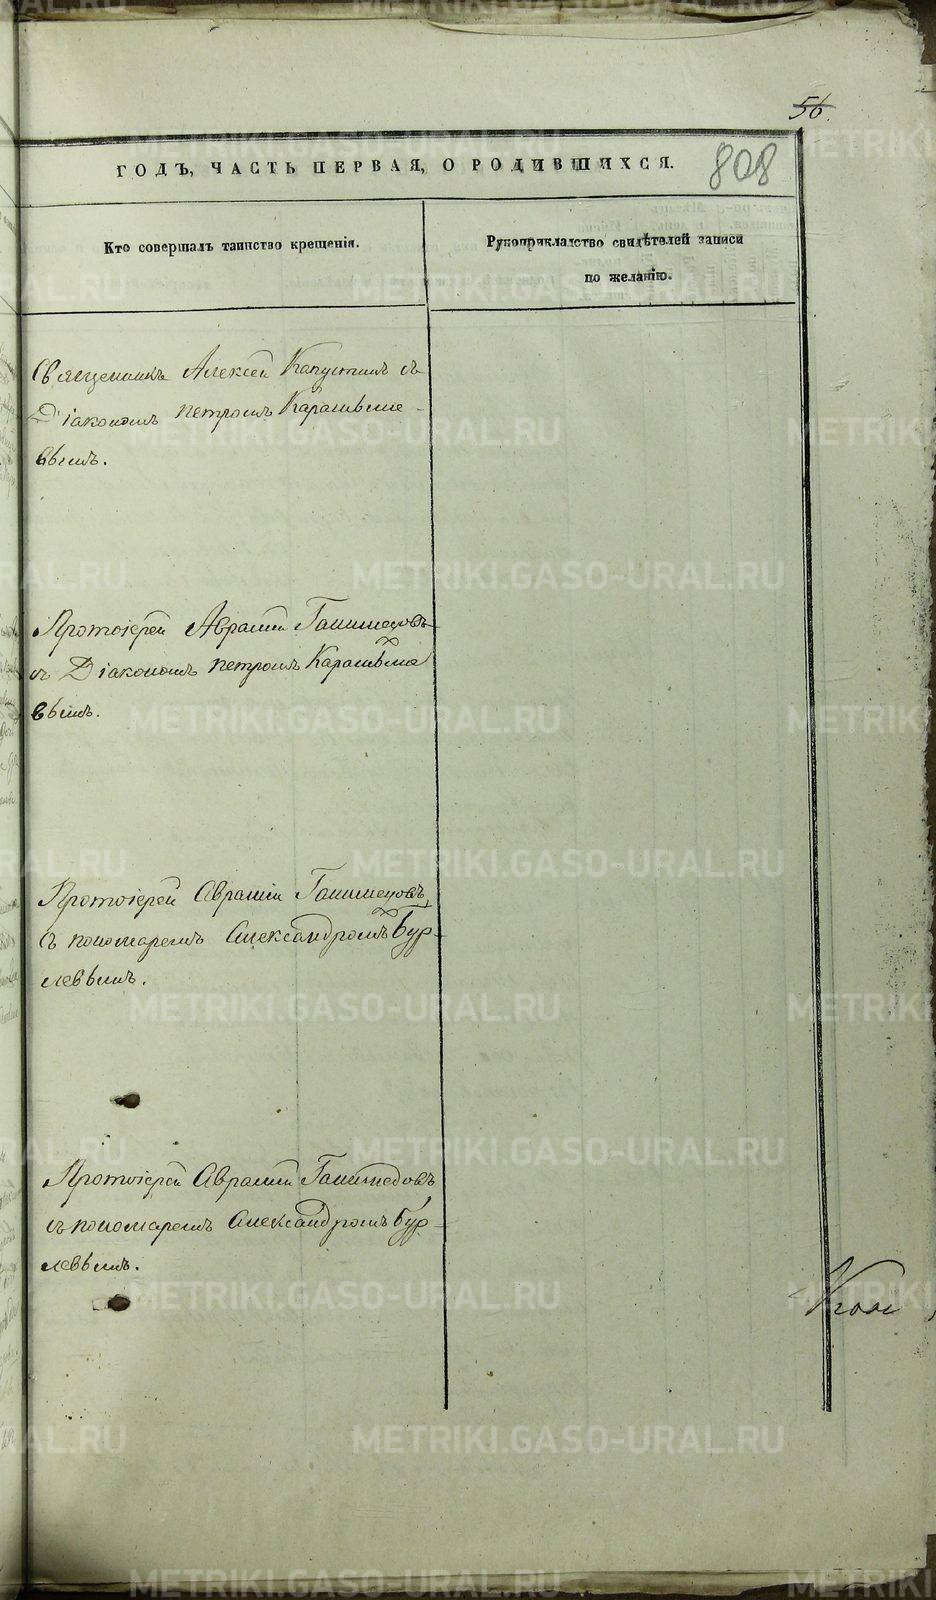 56.
ГОДЪ, ЧАСТЬ ПЕРВАЯ, О РОДИВШИХСЯ.
808
Кто совершалъ таинство крещенія.
Рукоприкладство свидѣтелей записи
по желанію.
Священникъ Алексей Капустинъ съ
Діакономъ Петромъ
вымъ.
Протоіерей Аврамій
съ Діакономъ Петромъ
вымъ.
Протоіерей Аврамій
съ пономаремъ Александромъ Бур-
левымъ.
Протоіерей Аврамій
съ пономаремъ Александромъ Бур-
левымъ.
METRIKI.GASO-URAL.RU